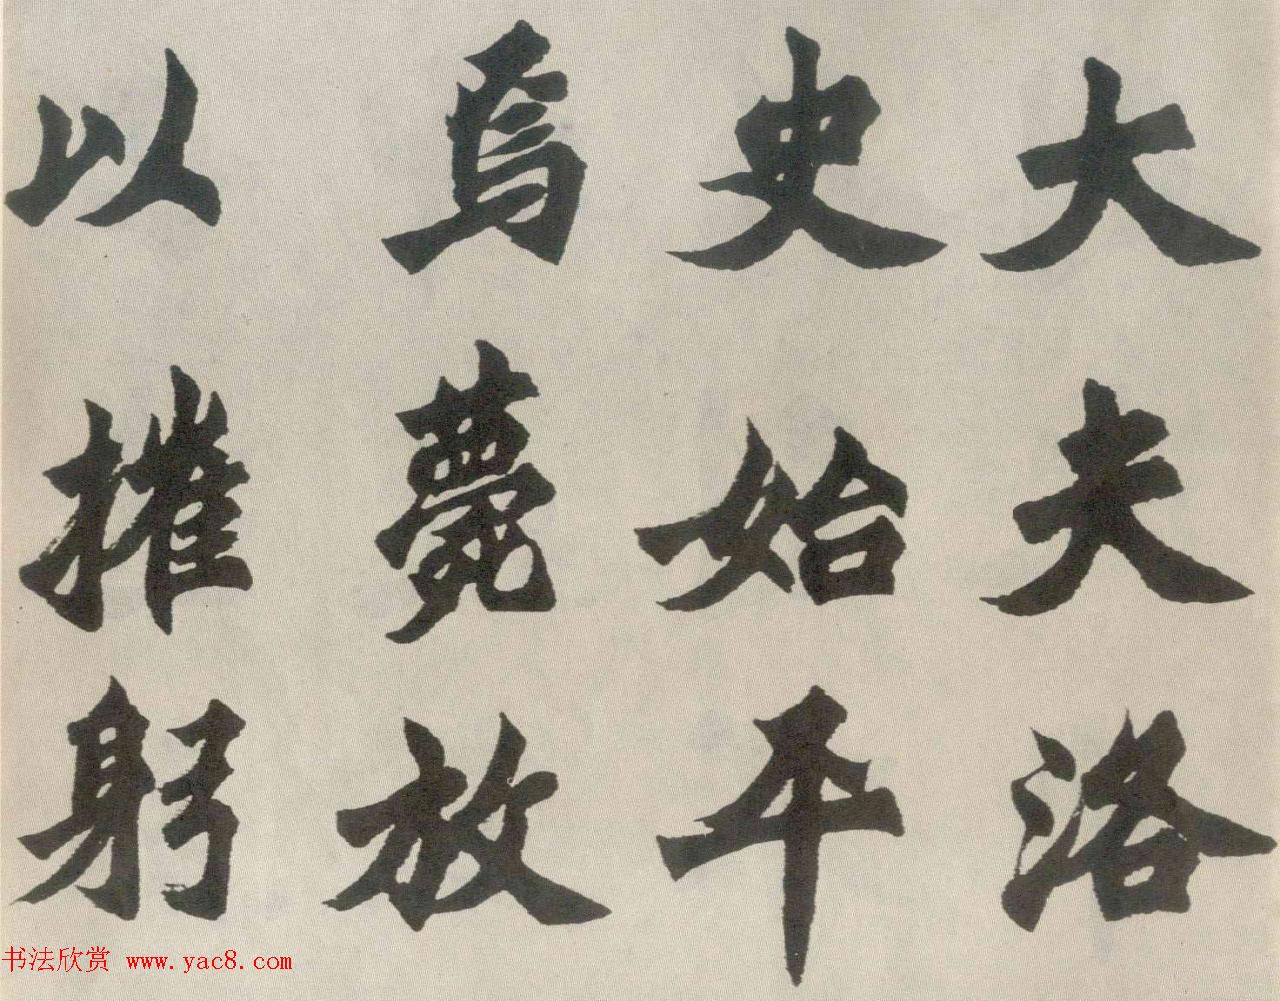 大夫洛
史始平
焉薨放
以摧躬
书法欣赏 www.yac8.com